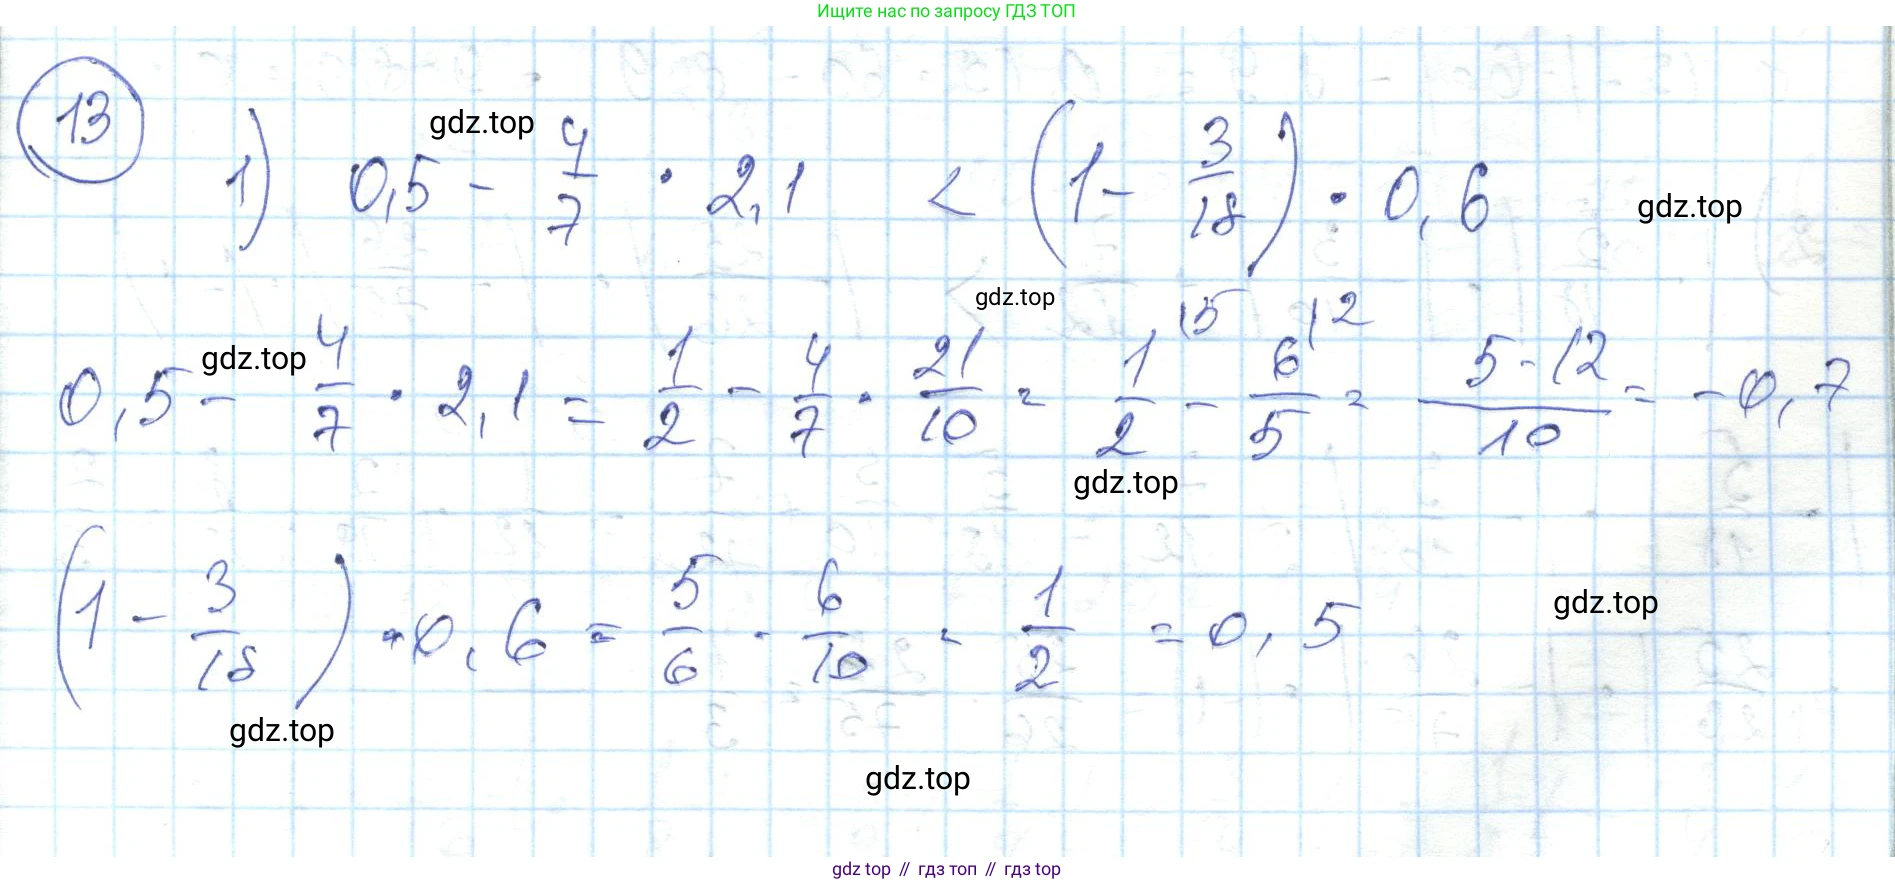 Ищите нас по запросу ГДЗ ТОП
13
gdz.top
1) 0,5 - 4/7 · 2,1 < (1 - 3/18) · 0,6
gdz.top
gdz.top
gdz.top
0,5 - 4/7 · 2,1 = 1/2 - 4/7 · 21/10 = 1/2 |5 - 6/5 |2 = 5-12/10 = -0,7
gdz.top
(1 - 3/18) · 0,6 = 5/6 · 6/10 = 1/2 = 0,5
gdz.top
gdz.top
gdz.top
gdz top // гдз топ // гдз top